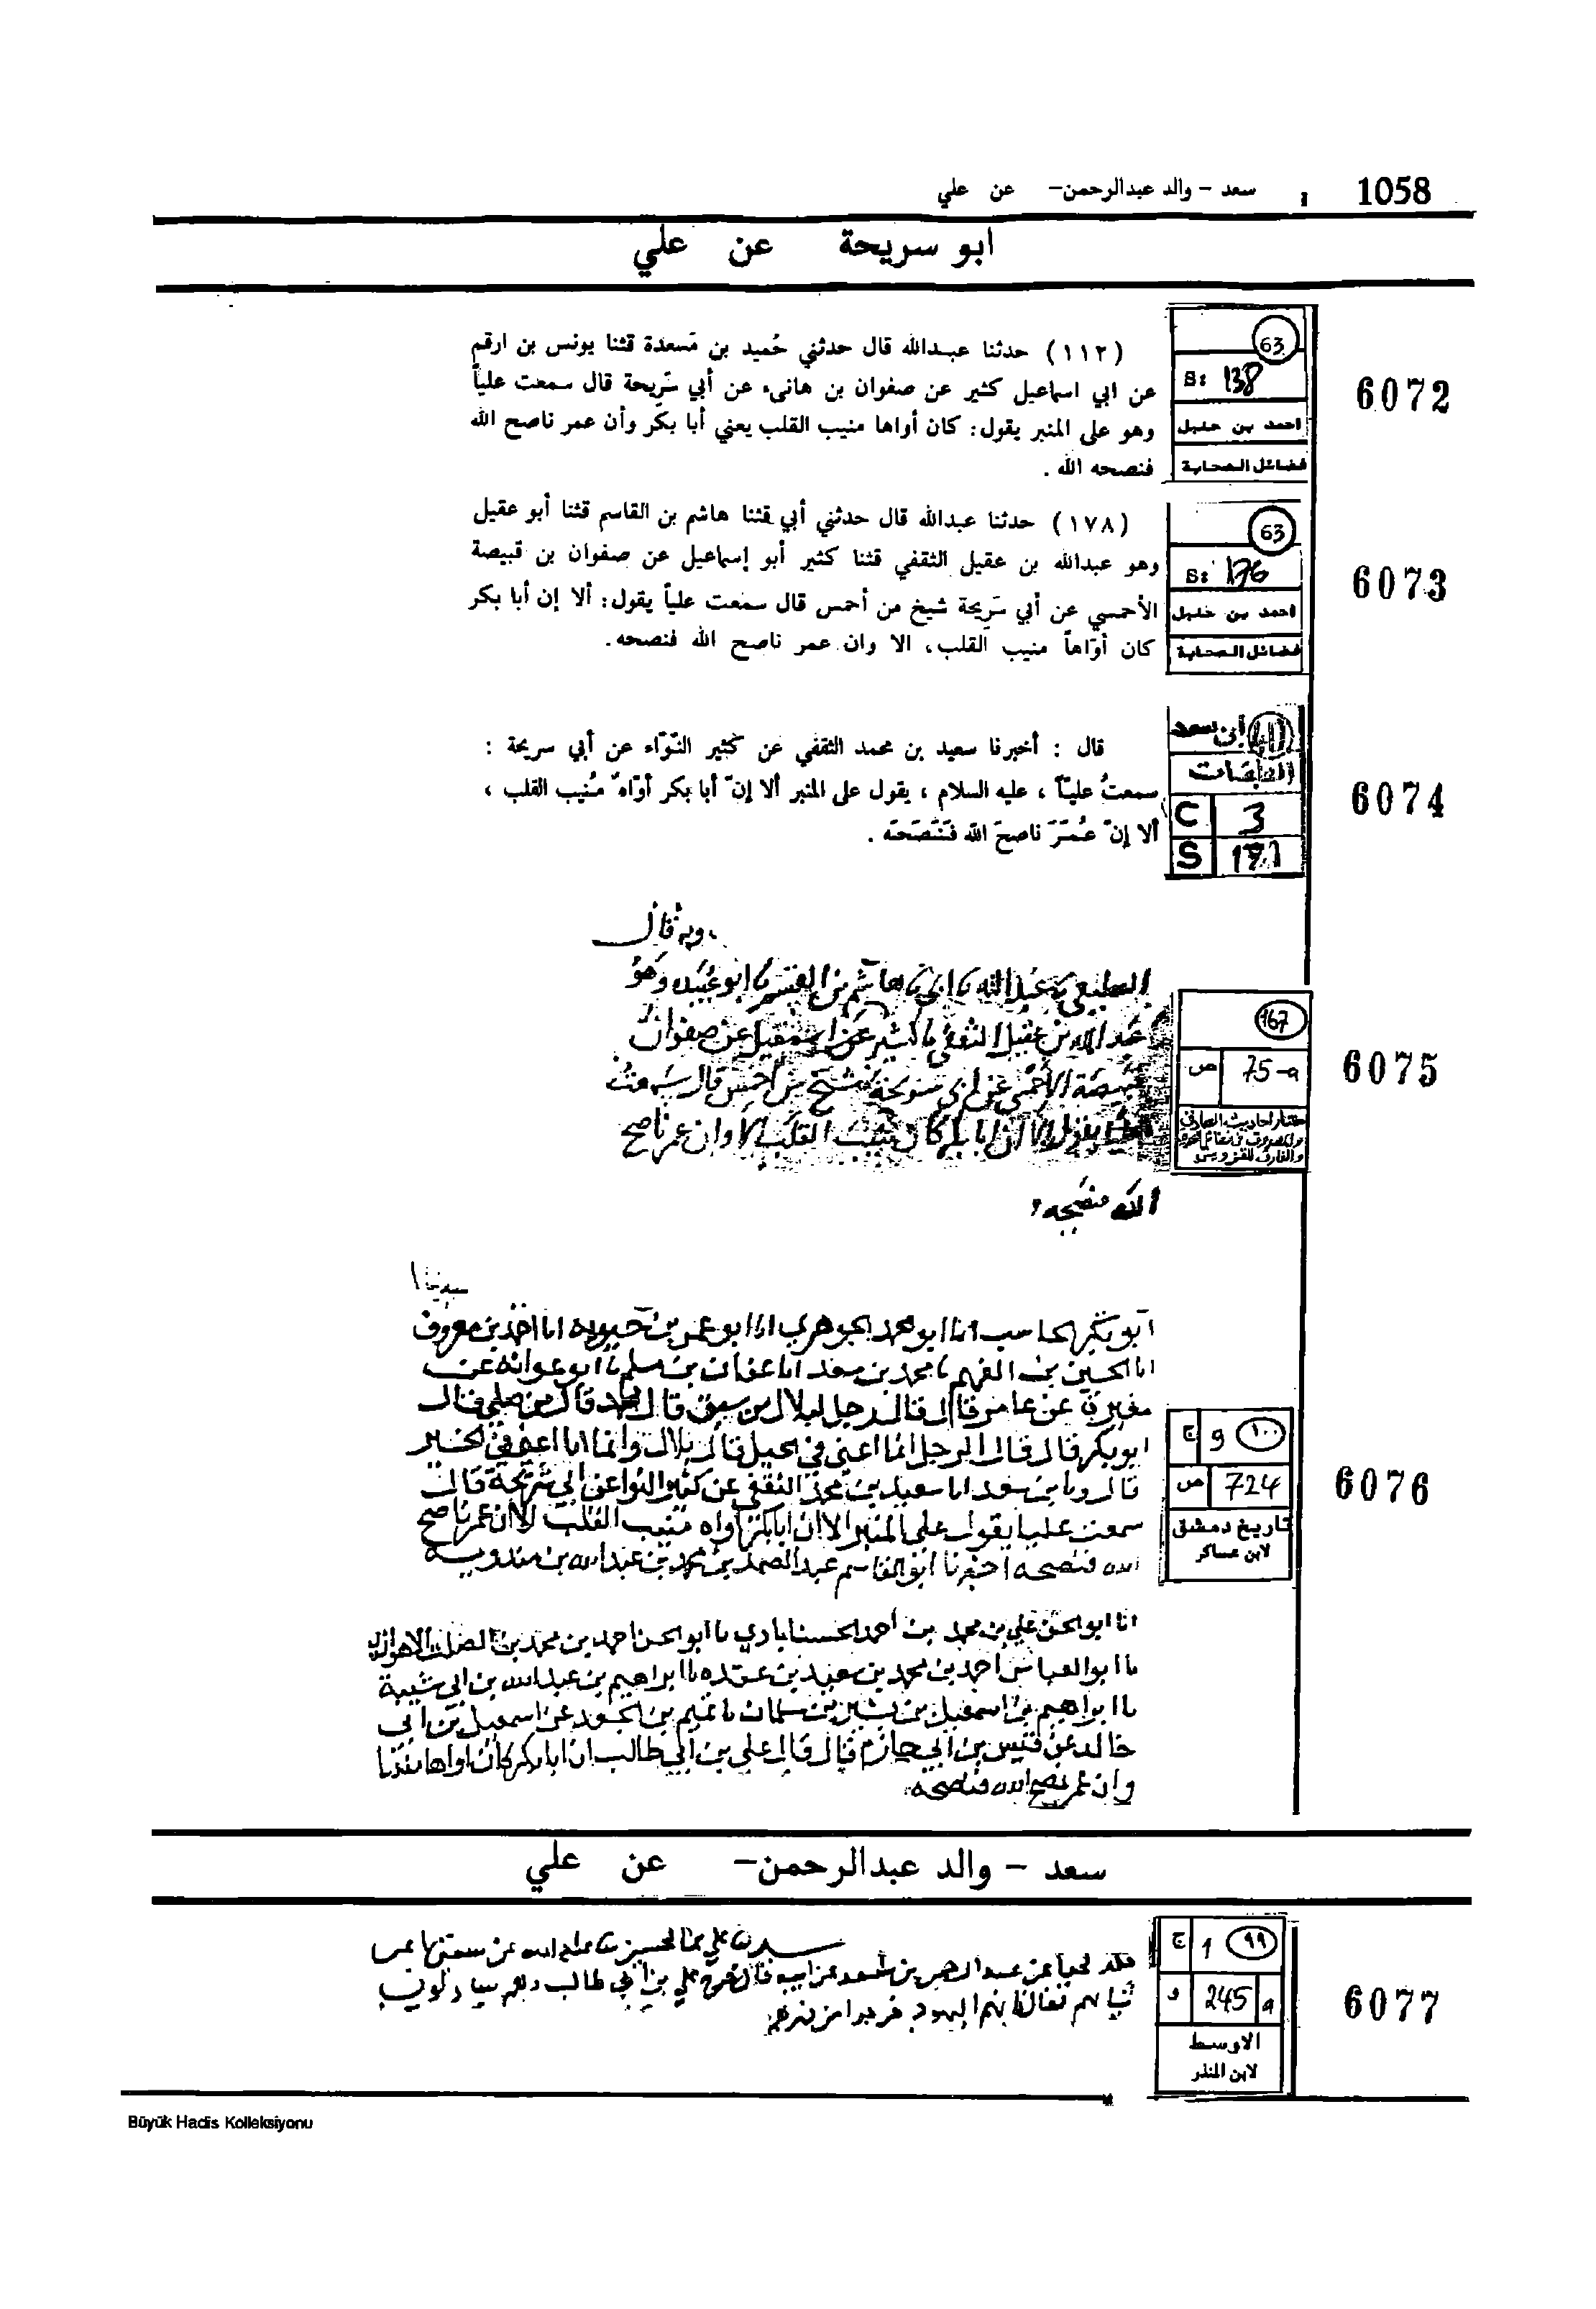 1058 : سعد - والد عبدالرحمن- عن علي
ابو سريحة عن علي
63
S: 138
احمد بن حنبل
فضائل الصحابة
6072
(١١٢) حدثنا عبدالله قال حدثني حُميد بن مَسعدة قثنا يونس بن ارقم
عن ابي اسماعيل كثير عن صفوان بن هانىء عن أبي سَرِيحة قال سمعت علياً
وهو على المنبر يقول: كان أواها منيب القلب يعني أبا بكر وأن عمر ناصح الله
فنصحه الله .
63
S: 176
احمد بن حنبل
فضائل الصحابة
6073
(١٧٨) حدثنا عبدالله قال حدثني أبي قثنا هاشم بن القاسم قثنا أبو عقيل
وهو عبدالله بن عقيل الثقفي قثنا كثير أبو إسماعيل عن صفوان بن قبيصة
الأحمسي عن أبي سَرِيحة شيخ من أحمس قال سمعت علياً يقول: ألا إن أبا بكر
كان أوّاهاً منيب القلب، الا وان عمر ناصح الله فنصحه.
ابن سعد
الطبقات
C 3
S 171
6074
قال : أخبرنا سعيد بن محمد الثقفي عن كثير النّوّاء عن أبي سريحة :
سمعتُ عليّاً ، عليه السلام ، يقول على المنبر ألا إنّ أبا بكر أوّاهٌ مُنيب القلب ،
ألا إنّ عُمَرَ ناصَحَ الله فَنَصَحَه .
وبه قال
عبد الله نا ابي نا هاشم بن القسم نا ابو عقيل وهو
عبد الله بن عقيل الثقفي نا كثير عن صفوان
قبيصة الأحمسي عن ابي سريحة شيخ من أحمس قال سمعت
يقول الا ان ابا بكر كان منيب القلب الا وان عمر ناصح
الله فنصحه
167
ص 75-a
6075
حدثنا
ابو بكر الحاسب انا ابو محمد الجوهري انا ابو عمر بن حيويه انا احمد بن معروف
انا الحسين بن الفهم نا محمد بن سعد انا عفان بن مسلم نا ابو عوانه عن
مغيرة عن عامر قال قال رجل لبلال من سبق قال محمد قال من صلى قال
ابو بكر قال قال الرجل انما اعني في الخيل قال بلال وانما انا اعني في الخير
قال ونا بن سعد انا سعيد بن محمد الثقفي عن كثير النوا عن ابي سريحة قال
سمعت عليا يقول على المنبر الا ان ابا بكر اواه منيب القلب الا ان عمر ناصح
الله فنصحه اخبرنا ابو القاسم عبد الصمد بن محمد بن عبد الله بن مندويه
انا ابو الحسن علي بن محمد بن أحمد الحسناباذي نا ابو الحسن احمد بن محمد بن الصلت الاهوازي
نا ابو العباس احمد بن محمد بن سعيد بن عقده نا ابراهيم بن عبد الله بن ابي شيبة
نا ابراهيم بن اسمعيل بن بشير بن سلمان نا تميم بن الجعد عن اسمعيل بن ابي
خالد عن قيس بن ابي حازم قال قال علي بن ابي طالب ان ابا بكر كان اواها
وان عمر نصح الله فنصحه
١٠٠ و ج
ص 724
تاريخ دمشق
لابن عساكر
6076
سعد - والد عبدالرحمن- عن علي
عن عبد الرحمن بن سعد عن ابيه قال علي بن ابي طالب
ثيابهم فقال كانهم اليهود خرجوا من فهرهم
٩٩ 1 ج
a 245 و
الاوسط
لابن المنذر
6077
Büyük Hadis Kolleksiyonu